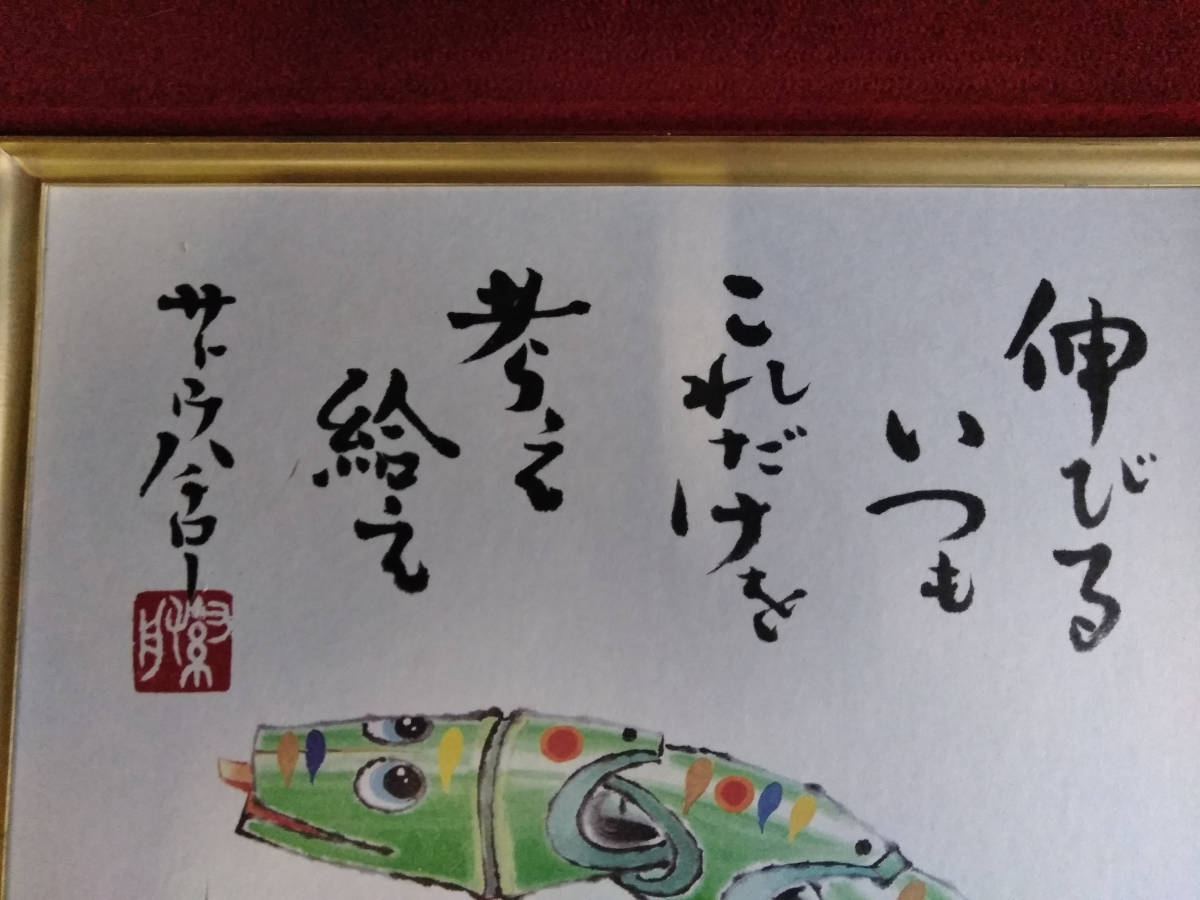 伸びる
いつも
これだけを
考え
給え
サトウハチロー